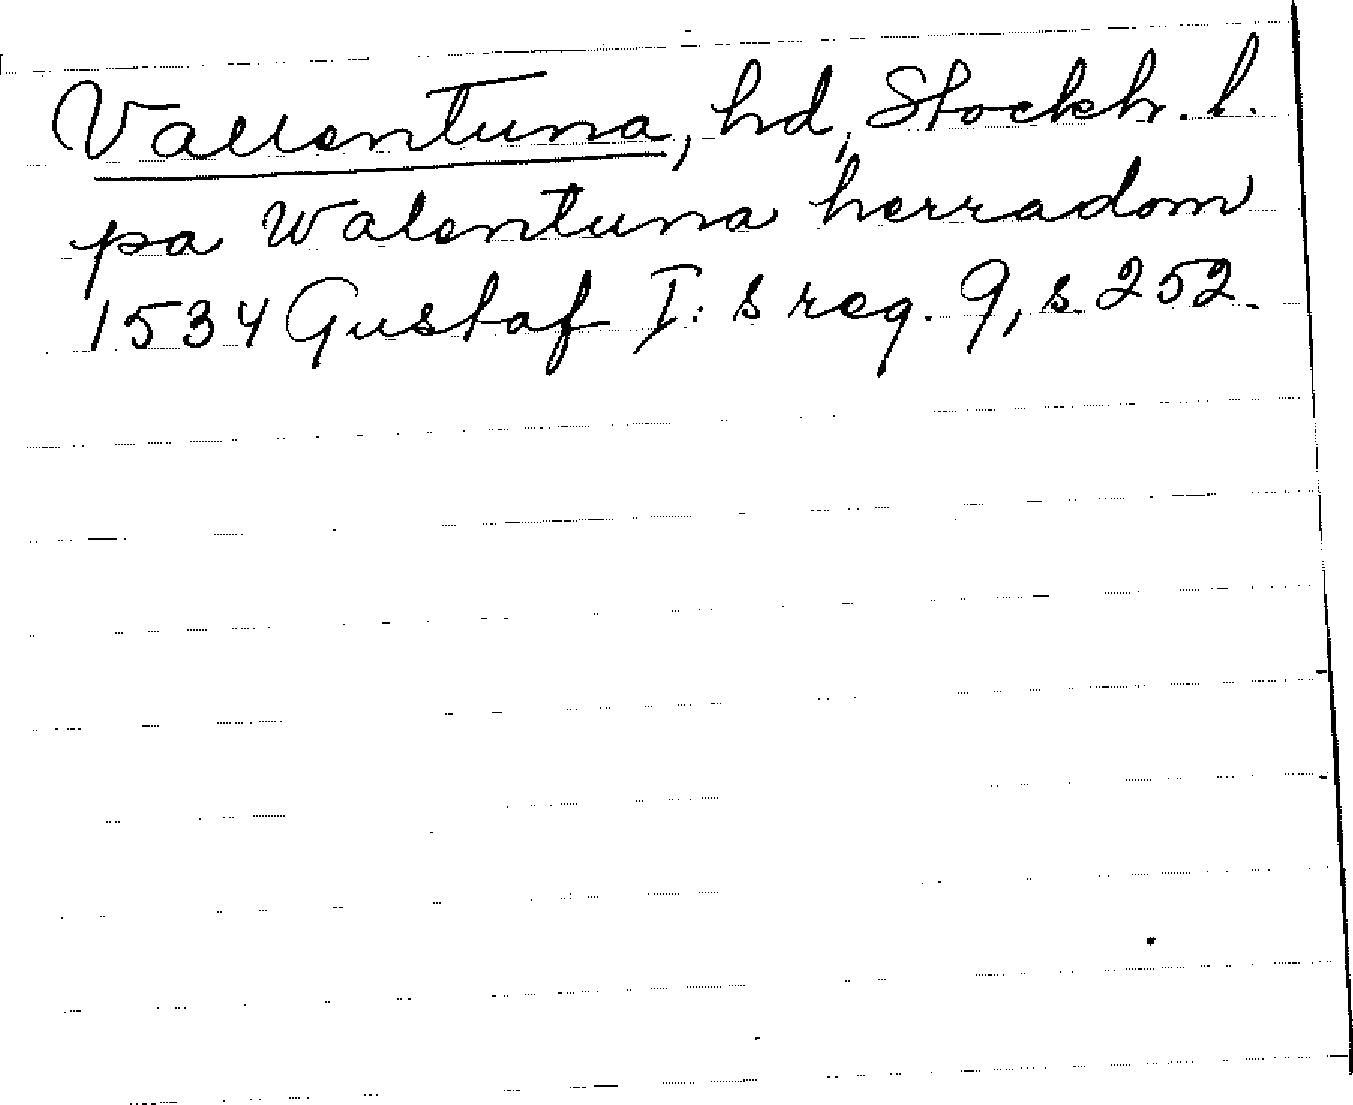 Vallentuna, hd, Stockh. l.
pa Walentuna herradom
1534 Gustaf I: s reg. 9, s. 252.